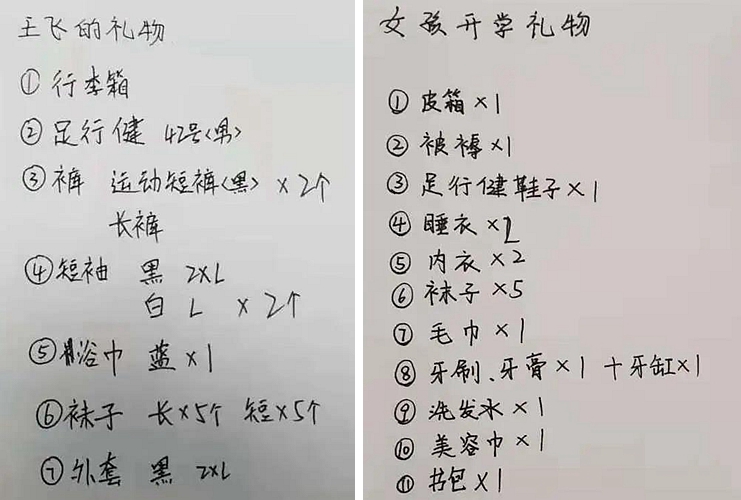 王飞的礼物
①行李箱
②足行健 42号<男>
③裤 运动短裤<黑> ×2个
长裤
④短袖 黑 2XL
白 L ×2个
⑤浴巾 蓝×1
⑥袜子 长×5个 短×5个
⑦外套 黑 2XL
女孩开学礼物
①皮箱×1
②被褥×1
③足行健鞋子×1
④睡衣×2
⑤内衣×2
⑥袜子×5
⑦毛巾×1
⑧牙刷、牙膏×1 +牙缸×1
⑨洗发水×1
⑩美容巾×1
⑪书包×1